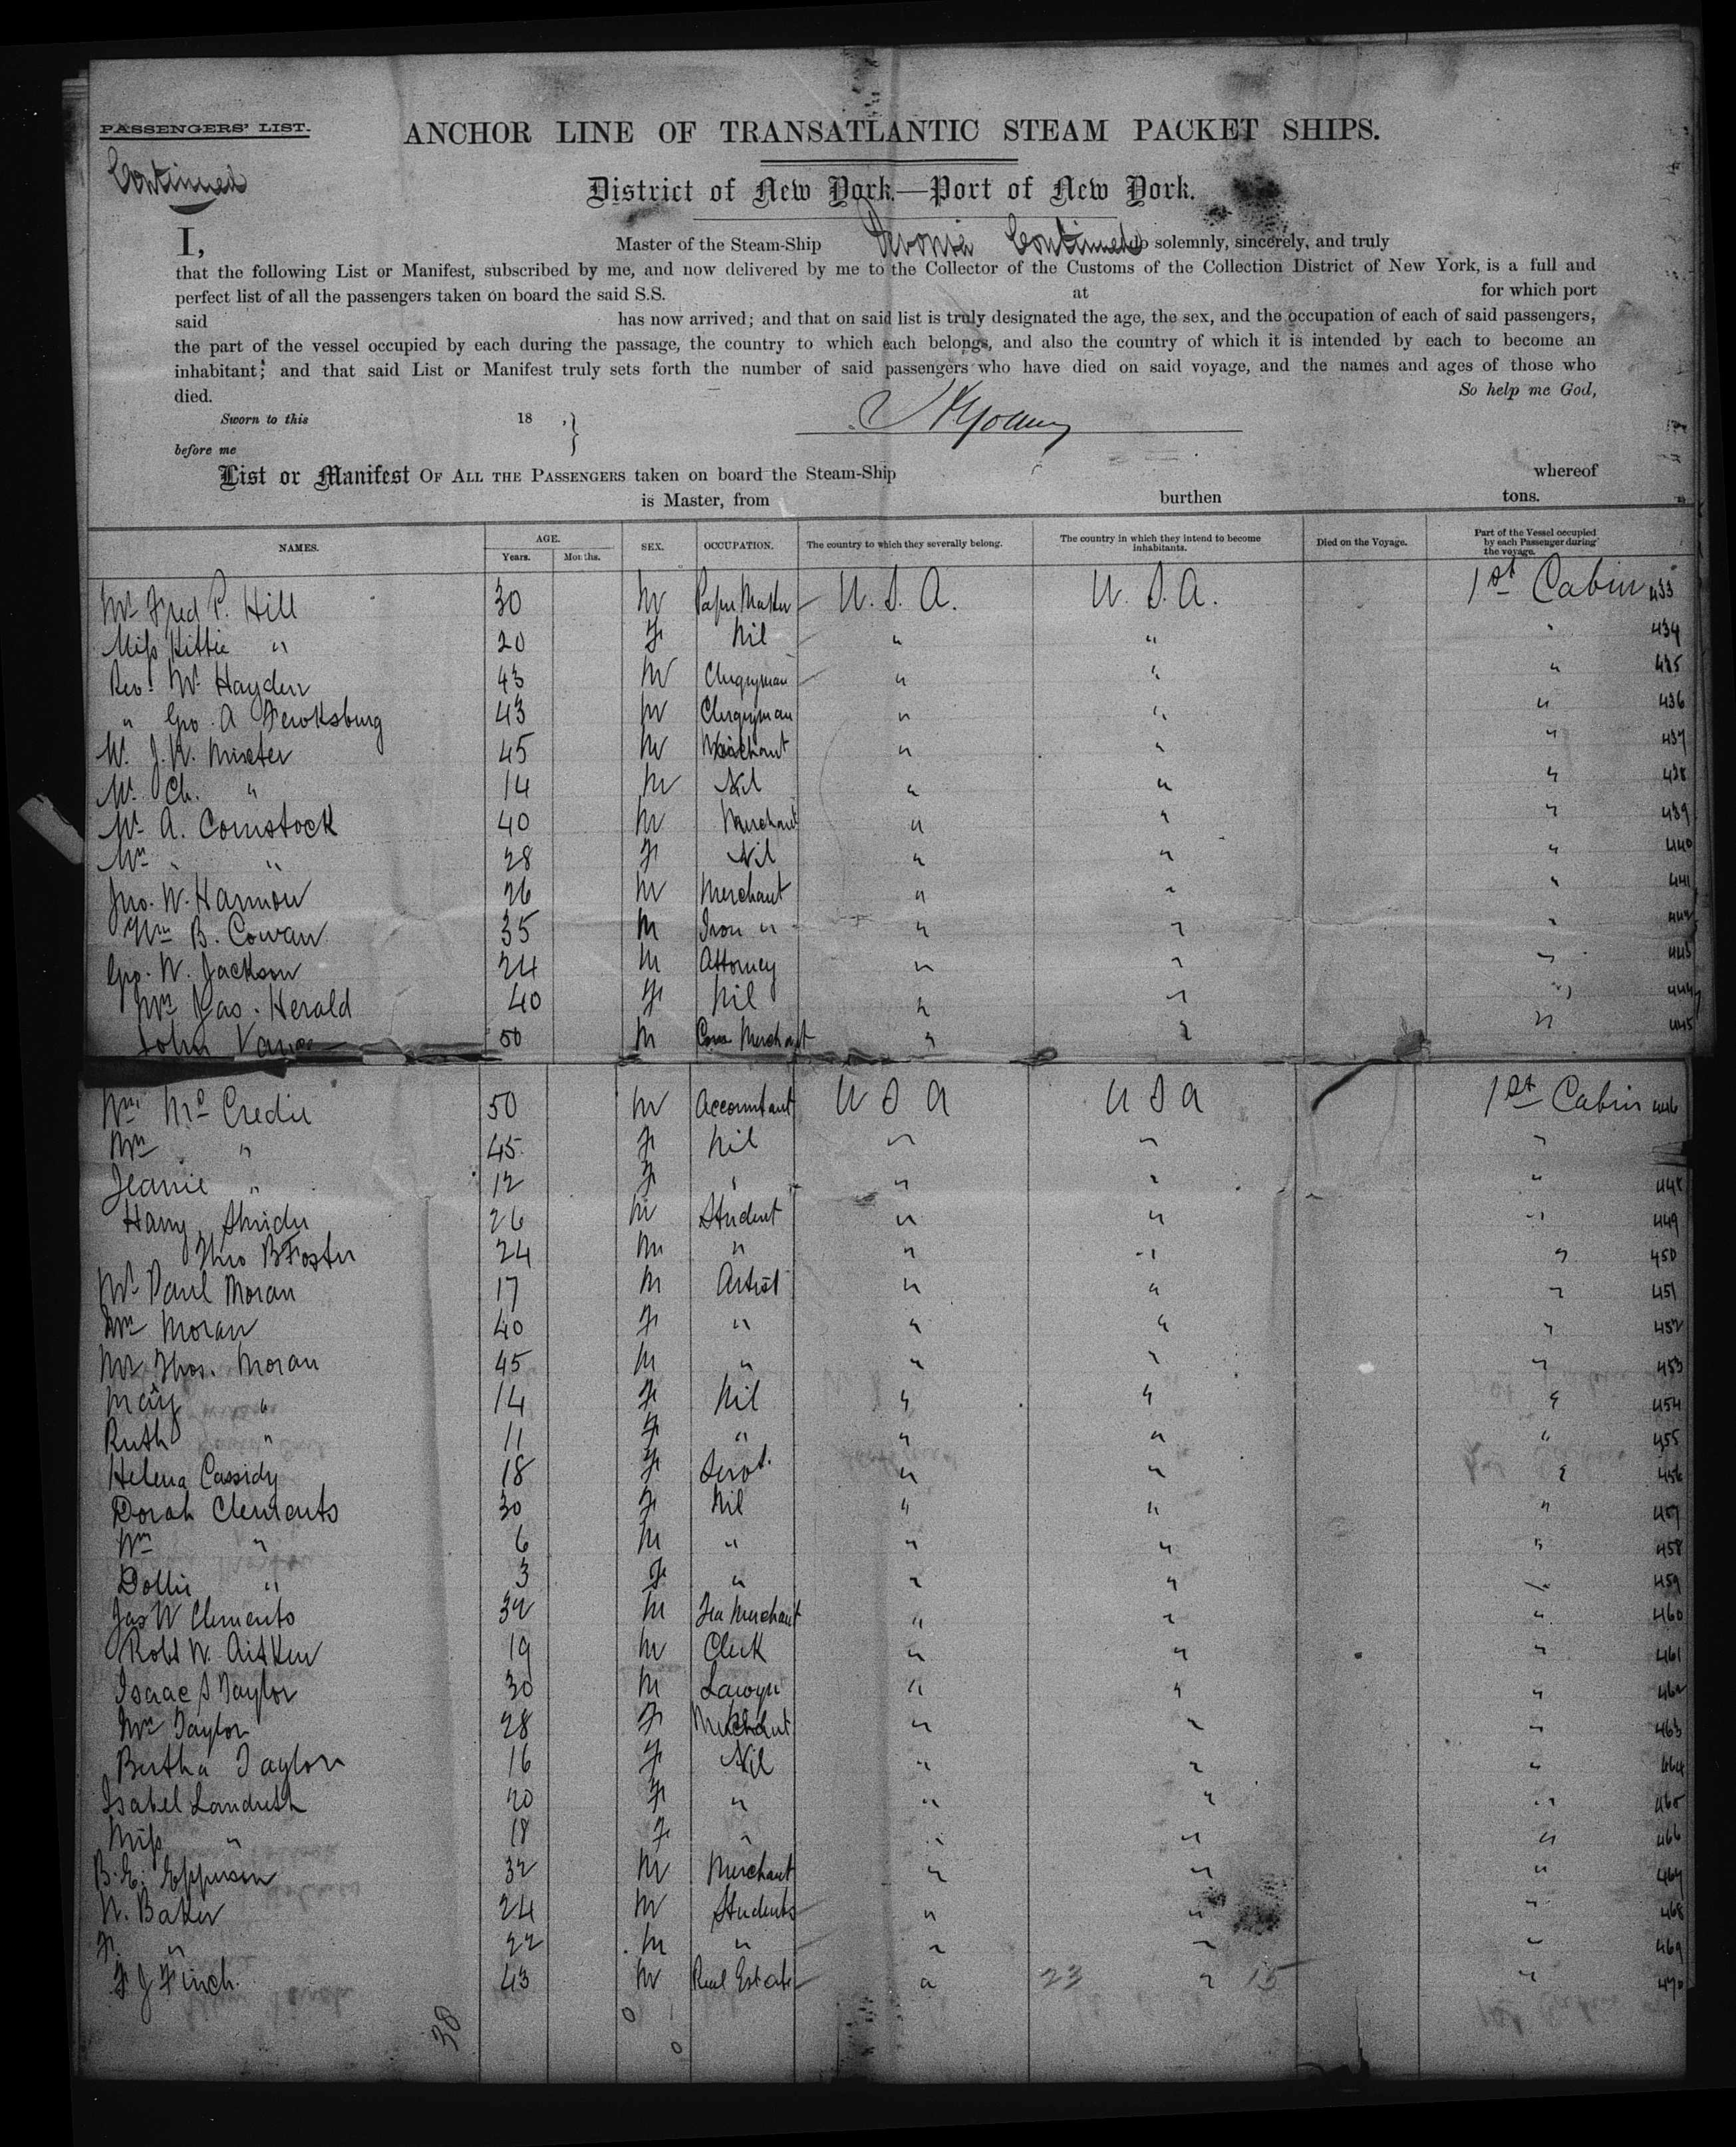 PASSENGERS' LIST.
Continued
ANCHOR LINE OF TRANSATLANTIC STEAM PACKET SHIPS.
District of New York.—Port of New York.
I, Master of the Steam-Ship Devonia Continued do solemnly, sincerely, and truly
that the following List or Manifest, subscribed by me, and now delivered by me to the Collector of the Customs of the Collection District of New York, is a full and
perfect list of all the passengers taken on board the said S.S. at for which port
said has now arrived; and that on said list is truly designated the age, the sex, and the occupation of each of said passengers,
the part of the vessel occupied by each during the passage, the country to which each belongs, and also the country of which it is intended by each to become an
inhabitant; and that said List or Manifest truly sets forth the number of said passengers who have died on said voyage, and the names and ages of those who
died. So help me God,
Sworn to this 18 , }
before me
List or Manifest OF ALL THE PASSENGERS taken on board the Steam-Ship whereof
is Master, from burthen tons.
NAMES. AGE. Years. Months. SEX. OCCUPATION. The country to which they severally belong. The country in which they intend to become inhabitants. Died on the Voyage. Part of the Vessel occupied by each Passenger during the voyage.
Mr Fred P. Hill 30 M Paper Maker U. S. A. U. S. A. 1st Cabin 433
Miss Kittie " 20 F Nil " " " 434
Rev. W. Hayden 43 M Clergyman " " " 435
" Geo. A Tewksburg 43 M Clergyman " " " 436
J. W. 45 M Merchant " " " 437
Mr. Ch. " 14 M Nil " " " 438
Mr A. Comstock 40 M Merchant " " " 439
Mrs " " 28 F Nil " " " 440
Jno. W. Harmon 26 M Merchant " " " 441
Wm B. Cowan 35 M Iron " " " " 442
Geo. W. Jackson 24 M Attorney " " " 443
Mrs Jas. Herald 40 F Nil " " " 444
John Vance 50 M Com Merchant " " " 445
Wm McCredie 50 M Accountant U S A U S A 1st Cabin 446
Mrs " 45 F Nil " " "
Jeanie " 12 F " " " " 448
Harry Shrider 26 M Student " " " 449
Theo B Foster 24 M " " " " 450
Mr Paul Moran 17 M Artist " " " 451
Mrs Moran 40 F " " " " 452
Mr Thos. Moran 45 M " " " " 453
Mary " 14 F Nil " " " 454
Ruth " 11 F " " " " 455
Helena Cassidy 18 F Servt. " " " 456
Dorah Clements 30 F Nil " " " 457
Wm " 6 M " " " " 458
Dollie " 3 F " " " " 459
Jas W Clements 32 M Tea Merchant " " " 460
Robt W. Aitken 19 M Clerk " " " 461
Isaac S Taylor 30 M Lawyer " " " 462
Mrs Taylor 28 F " " " 463
Bertha Taylor 16 F Nil " " " 464
Isabel Landreth 20 F " " " " 465
Miss " 18 F " " " " 466
B. E. Epperson 32 M Merchant " " " 467
W. Baker 24 M Students " " " 468
F. " 22 M " " " " 469
F J Finch. 43 M Real Estate " 23 " 15 " 470
38